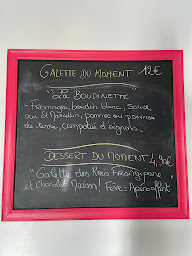 GALETTE DU MOMENT 12€
"LA BOUDINETTE"
- Fromages, boudin blanc, sauce
au St Marcellin, pommes ou pommes
de terre, compotée d'oignons.
DESSERT DU MOMENT 4,90€
"Galette des Rois Frangipane"
et Chocolat Maison! Fève = Apéro offert